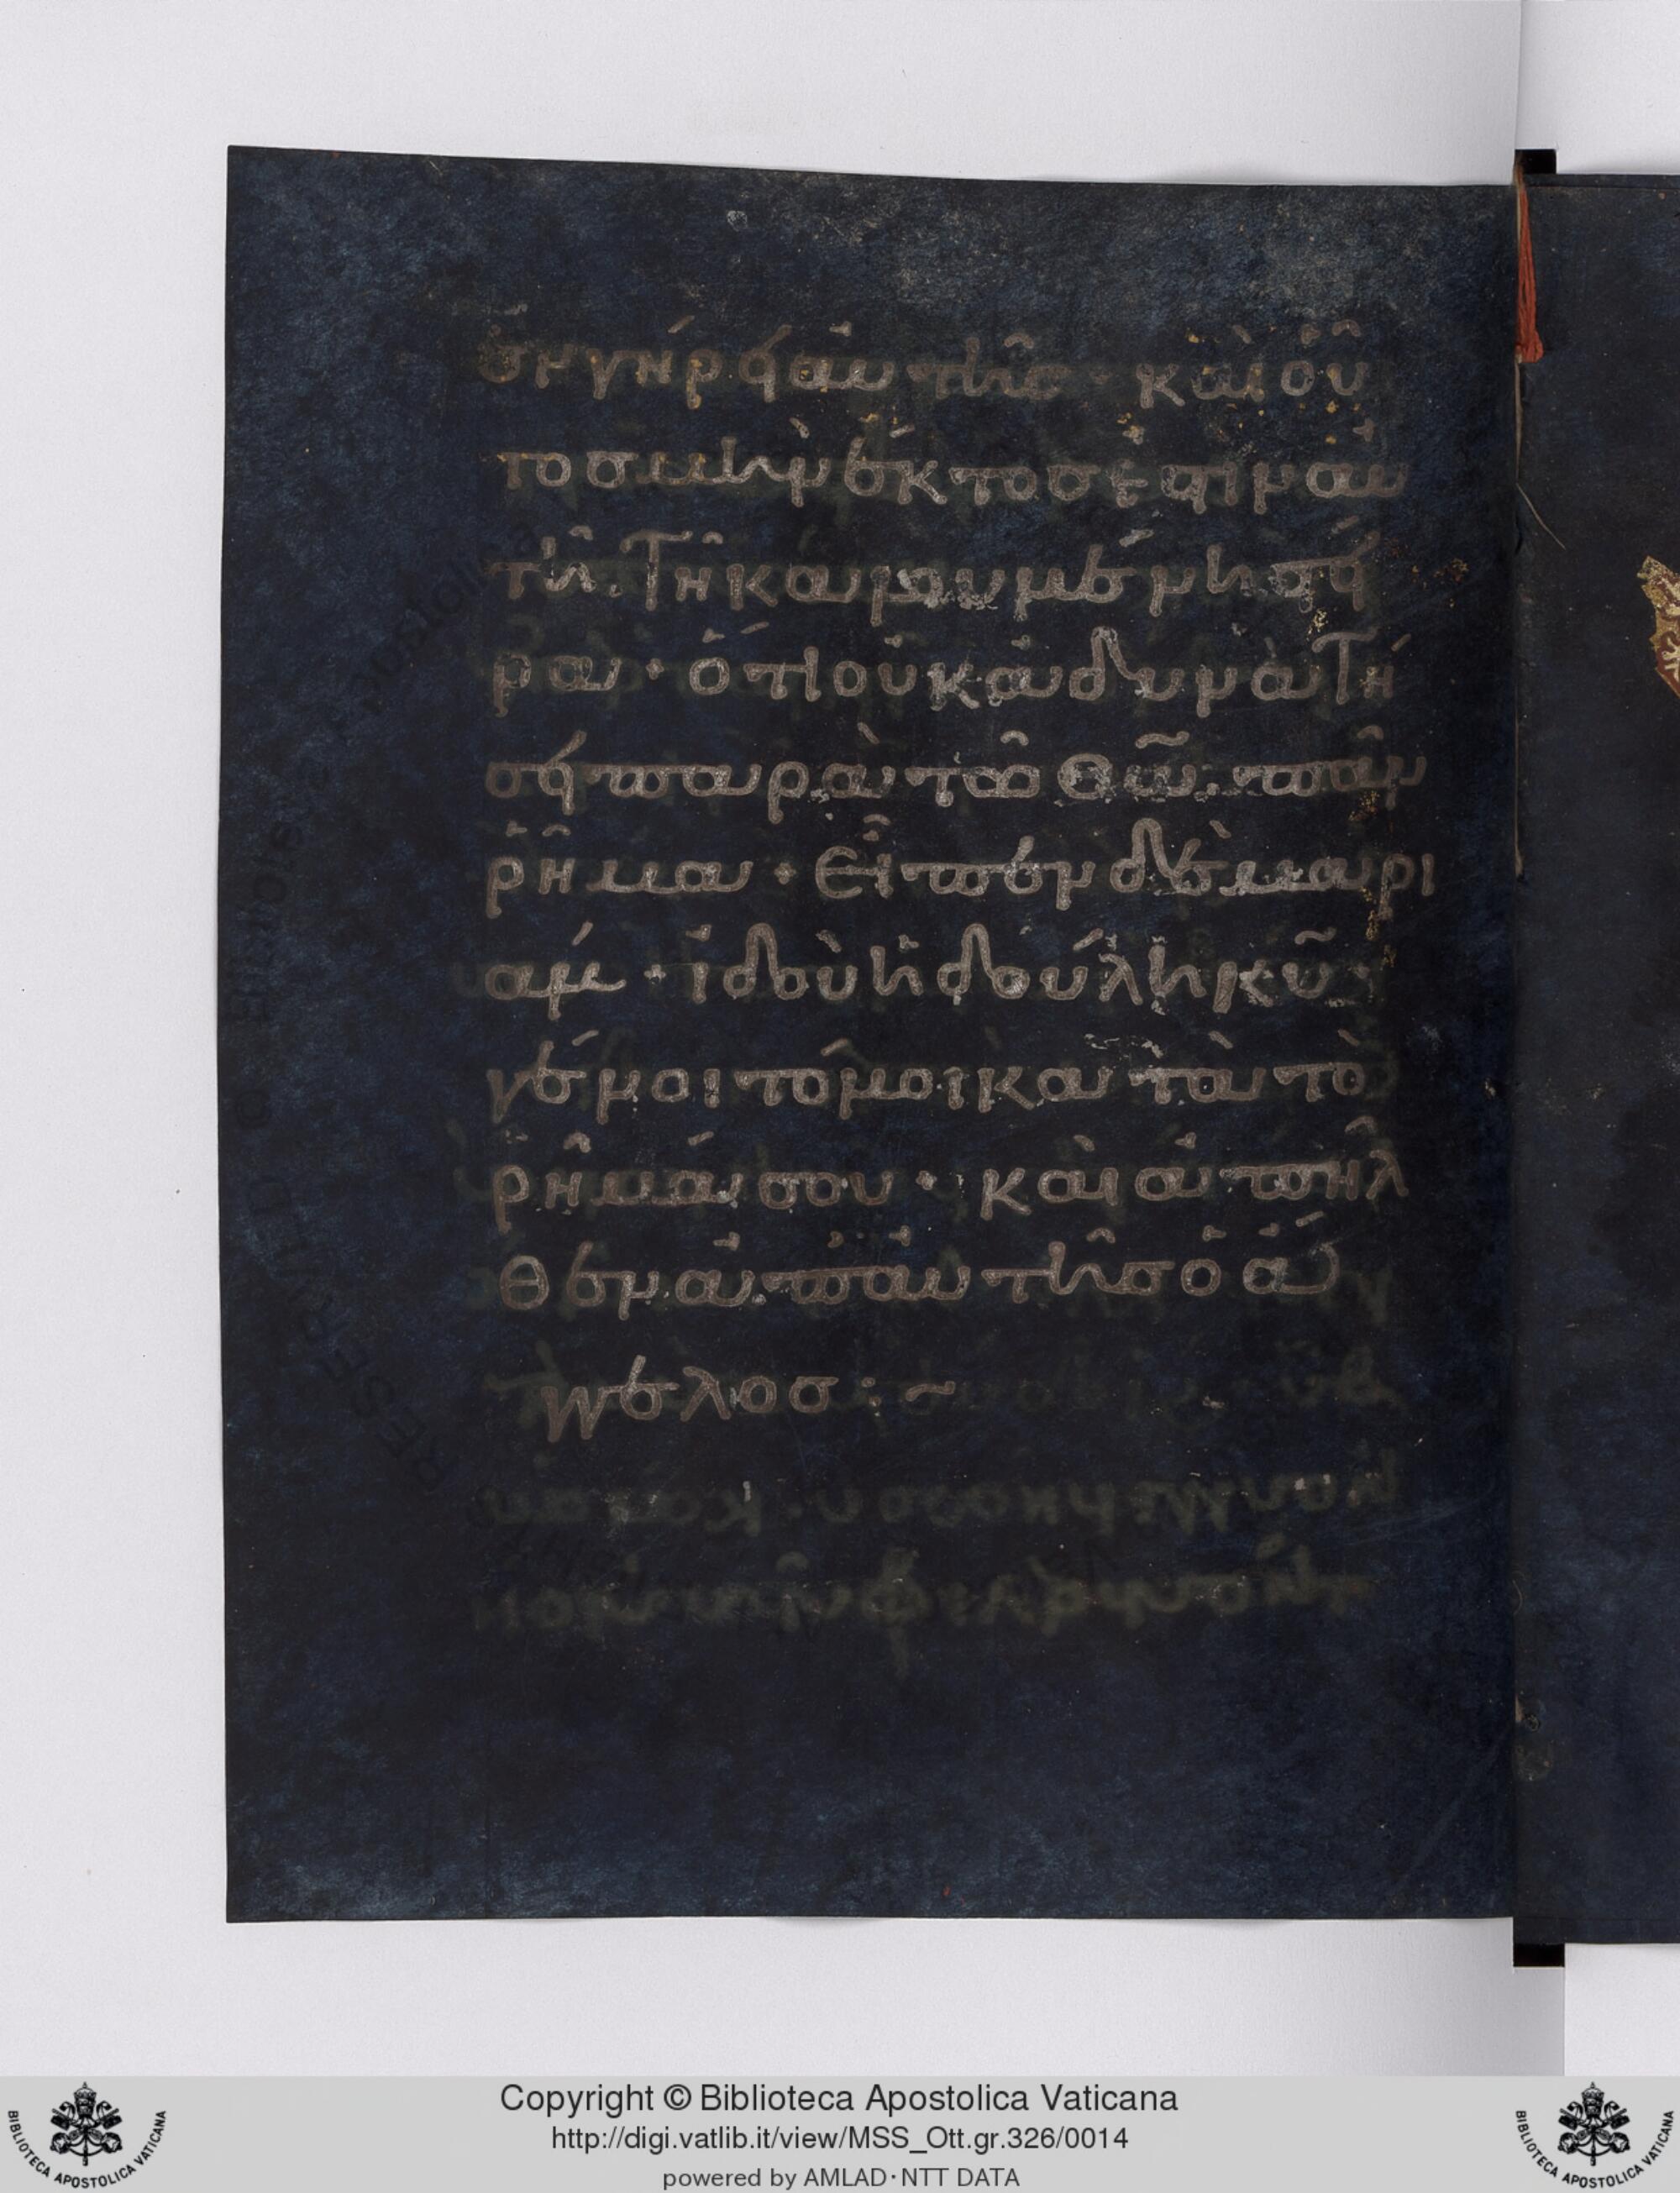 ἐν γήρει αὐτῆς· καὶ οὗ
τος μὴν ἕκτος ἐστὶν αὐ
τῆ. Τῆ καλουμένη στεί
ρα· ὅτι οὐκ ἀδυνατή
σει παρὰ τῶ Θω̃ πᾶν
ῥῆμα· Εἶπεν δὲ μαρι
άμ· ἰδοὺ ἡ δούλη κυ̃·
γένοιτό μοι κατὰ τὸ
ῥῆμά σου· καὶ ἀπῆλ
θεν ἀπ' αὐτῆς ὁ ἄγ
γελος:~
Copyright © Biblioteca Apostolica Vaticana
http://digi.vatlib.it/view/MSS_Ott.gr.326/0014
powered by AMLAD·NTT DATA
BIBLIOTECA APOSTOLICA VATICANA
BIBLIOTECA APOSTOLICA VATICANA